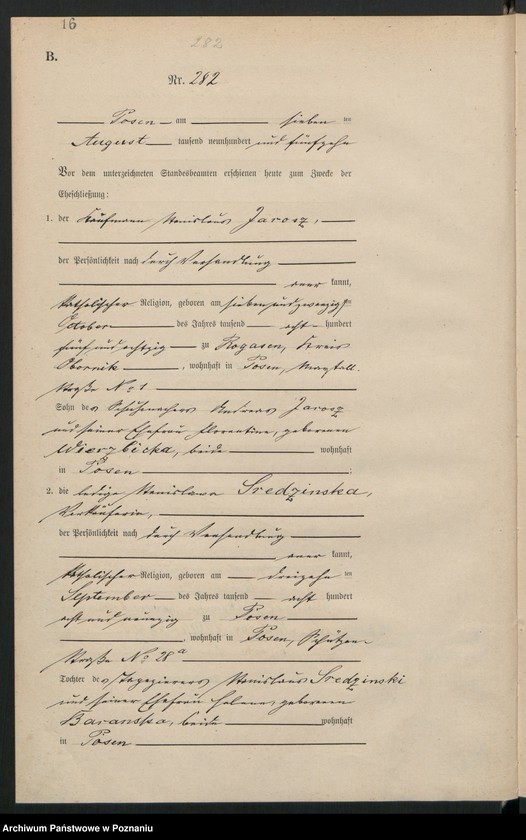 16
282
B.
Nr. 282
Posen am sieben ten
August tausend neunhundert und fünfzehn
Vor dem unterzeichneten Standesbeamten erschienen heute zum Zwecke der
Eheschließung:
1. der Kaufmann Stanislaus Jarosz,
der Persönlichkeit nach durch Verhandlung
aner kannt,
katholischer Religion, geboren am sieben und zwanzigsten
October des Jahres tausend acht hundert
fünf und achtzig zu Rogasen, Kreis
Obornik, wohnhaft in Posen,
straße No 1
Sohn des Schuhmachers Andreas Jarosz
und seiner Ehefrau Florentine, geborenen
Wierzbicka, beide wohnhaft
in Posen ;
2. die ledige Stanislawa Sredzinska,
Verkäuferin,
der Persönlichkeit nach durch Verhandlung
aner kannt,
katholischer Religion, geboren am dreizehn ten
September des Jahres tausend acht hundert
acht und neunzig zu Posen
, wohnhaft in Posen, Schützen-
straße No 28a
Tochter des Tapezierers Stanislaus Sredzinski
und seiner Ehefrau Helene, geborenen
Baranska, beide wohnhaft
in Posen
Archiwum Państwowe w Poznaniu